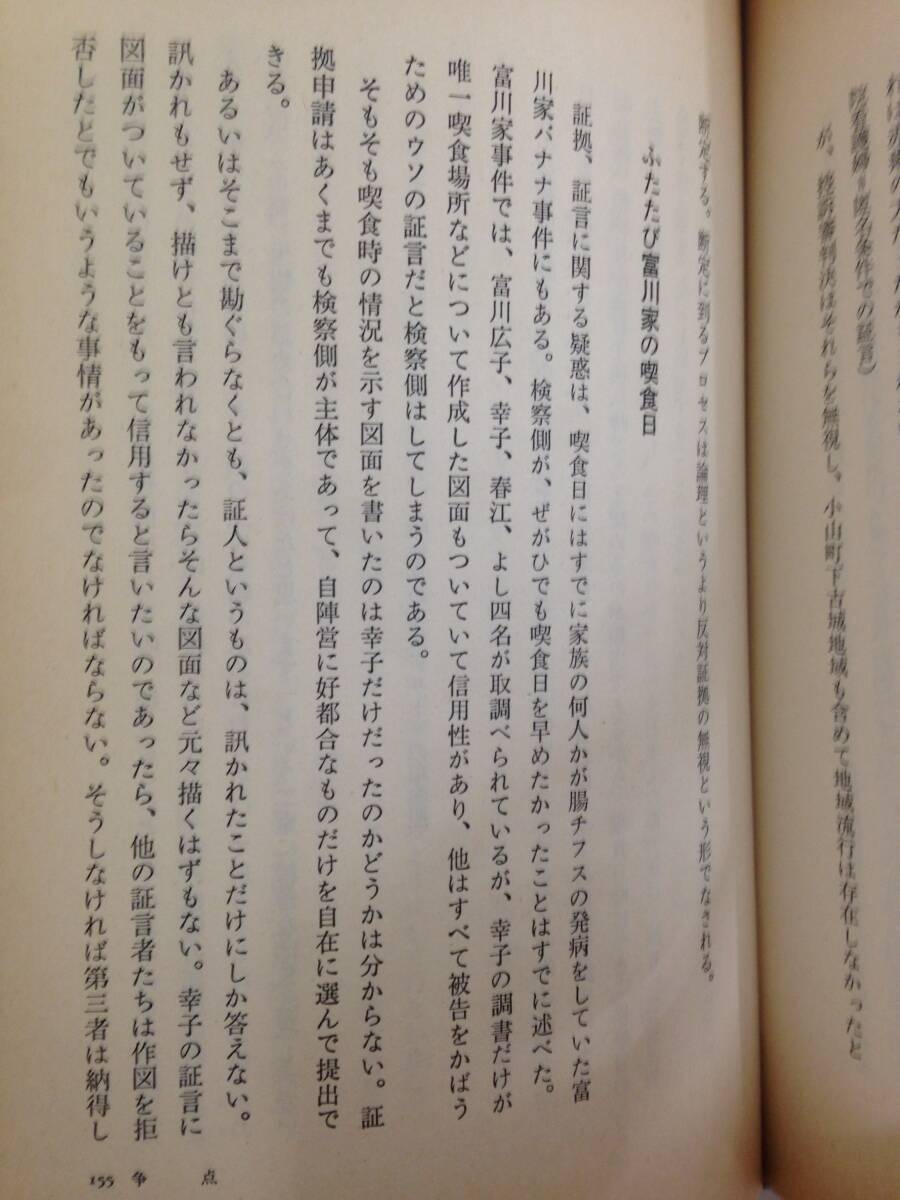 が、控訴審判決はそれらを無視し、小山町下古城地域も含めて地域流行は存在しなかったと
断定する。断定に到るプロセスは論理というより反対証拠の無視という形でなされる。
ふたたび富川家の喫食日
証拠、証言に関する疑惑は、喫食日にはすでに家族の何人かが腸チフスの発病をしていた富
川家バナナ事件にもある。検察側が、ぜがひでも喫食日を早めたかったことはすでに述べた。
富川家事件では、富川広子、幸子、春江、よし四名が取調べられているが、幸子の調書だけが
唯一喫食場所などについて作成した図面もついていて信用性があり、他はすべて被告をかばう
ためのウソの証言だと検察側はしてしまうのである。
そもそも喫食時の情況を示す図面を書いたのは幸子だけだったのかどうかは分からない。証
拠申請はあくまでも検察側が主体であって、自陣営に好都合なものだけを自在に選んで提出で
きる。
あるいはそこまで勘ぐらなくとも、証人というものは、訊かれたことだけにしか答えない。
訊かれもせず、描けとも言われなかったらそんな図面など元々描くはずもない。幸子の証言に
図面がついていることをもって信用すると言いたいのであったら、他の証言者たちは作図を拒
否したとでもいうような事情があったのでなければならない。そうしなければ第三者は納得し
155 争点